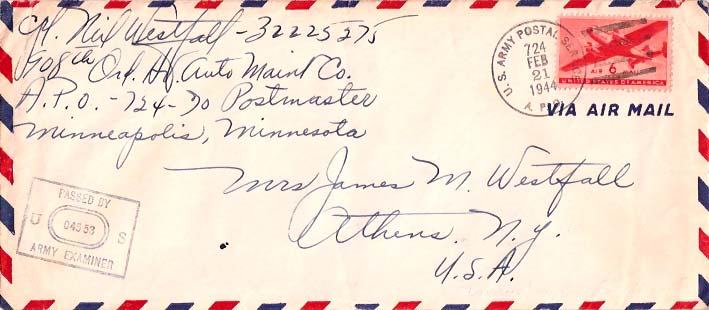 Cpl. Neil Westfall - 32225275
708th Ord. Hf. Auto Maint Co.
A.P.O. - 724 - % Postmaster
Minneapolis, Minnesota
U.S. ARMY POSTAL SERVICE
724
FEB
21
1944
A. P. O.
AIR 6 MAIL
UNITED STATES OF AMERICA
VIA AIR MAIL
Mrs James M. Westfall
Athens, N.Y.
U.S.A.
PASSED BY
U 04553 S
ARMY EXAMINER